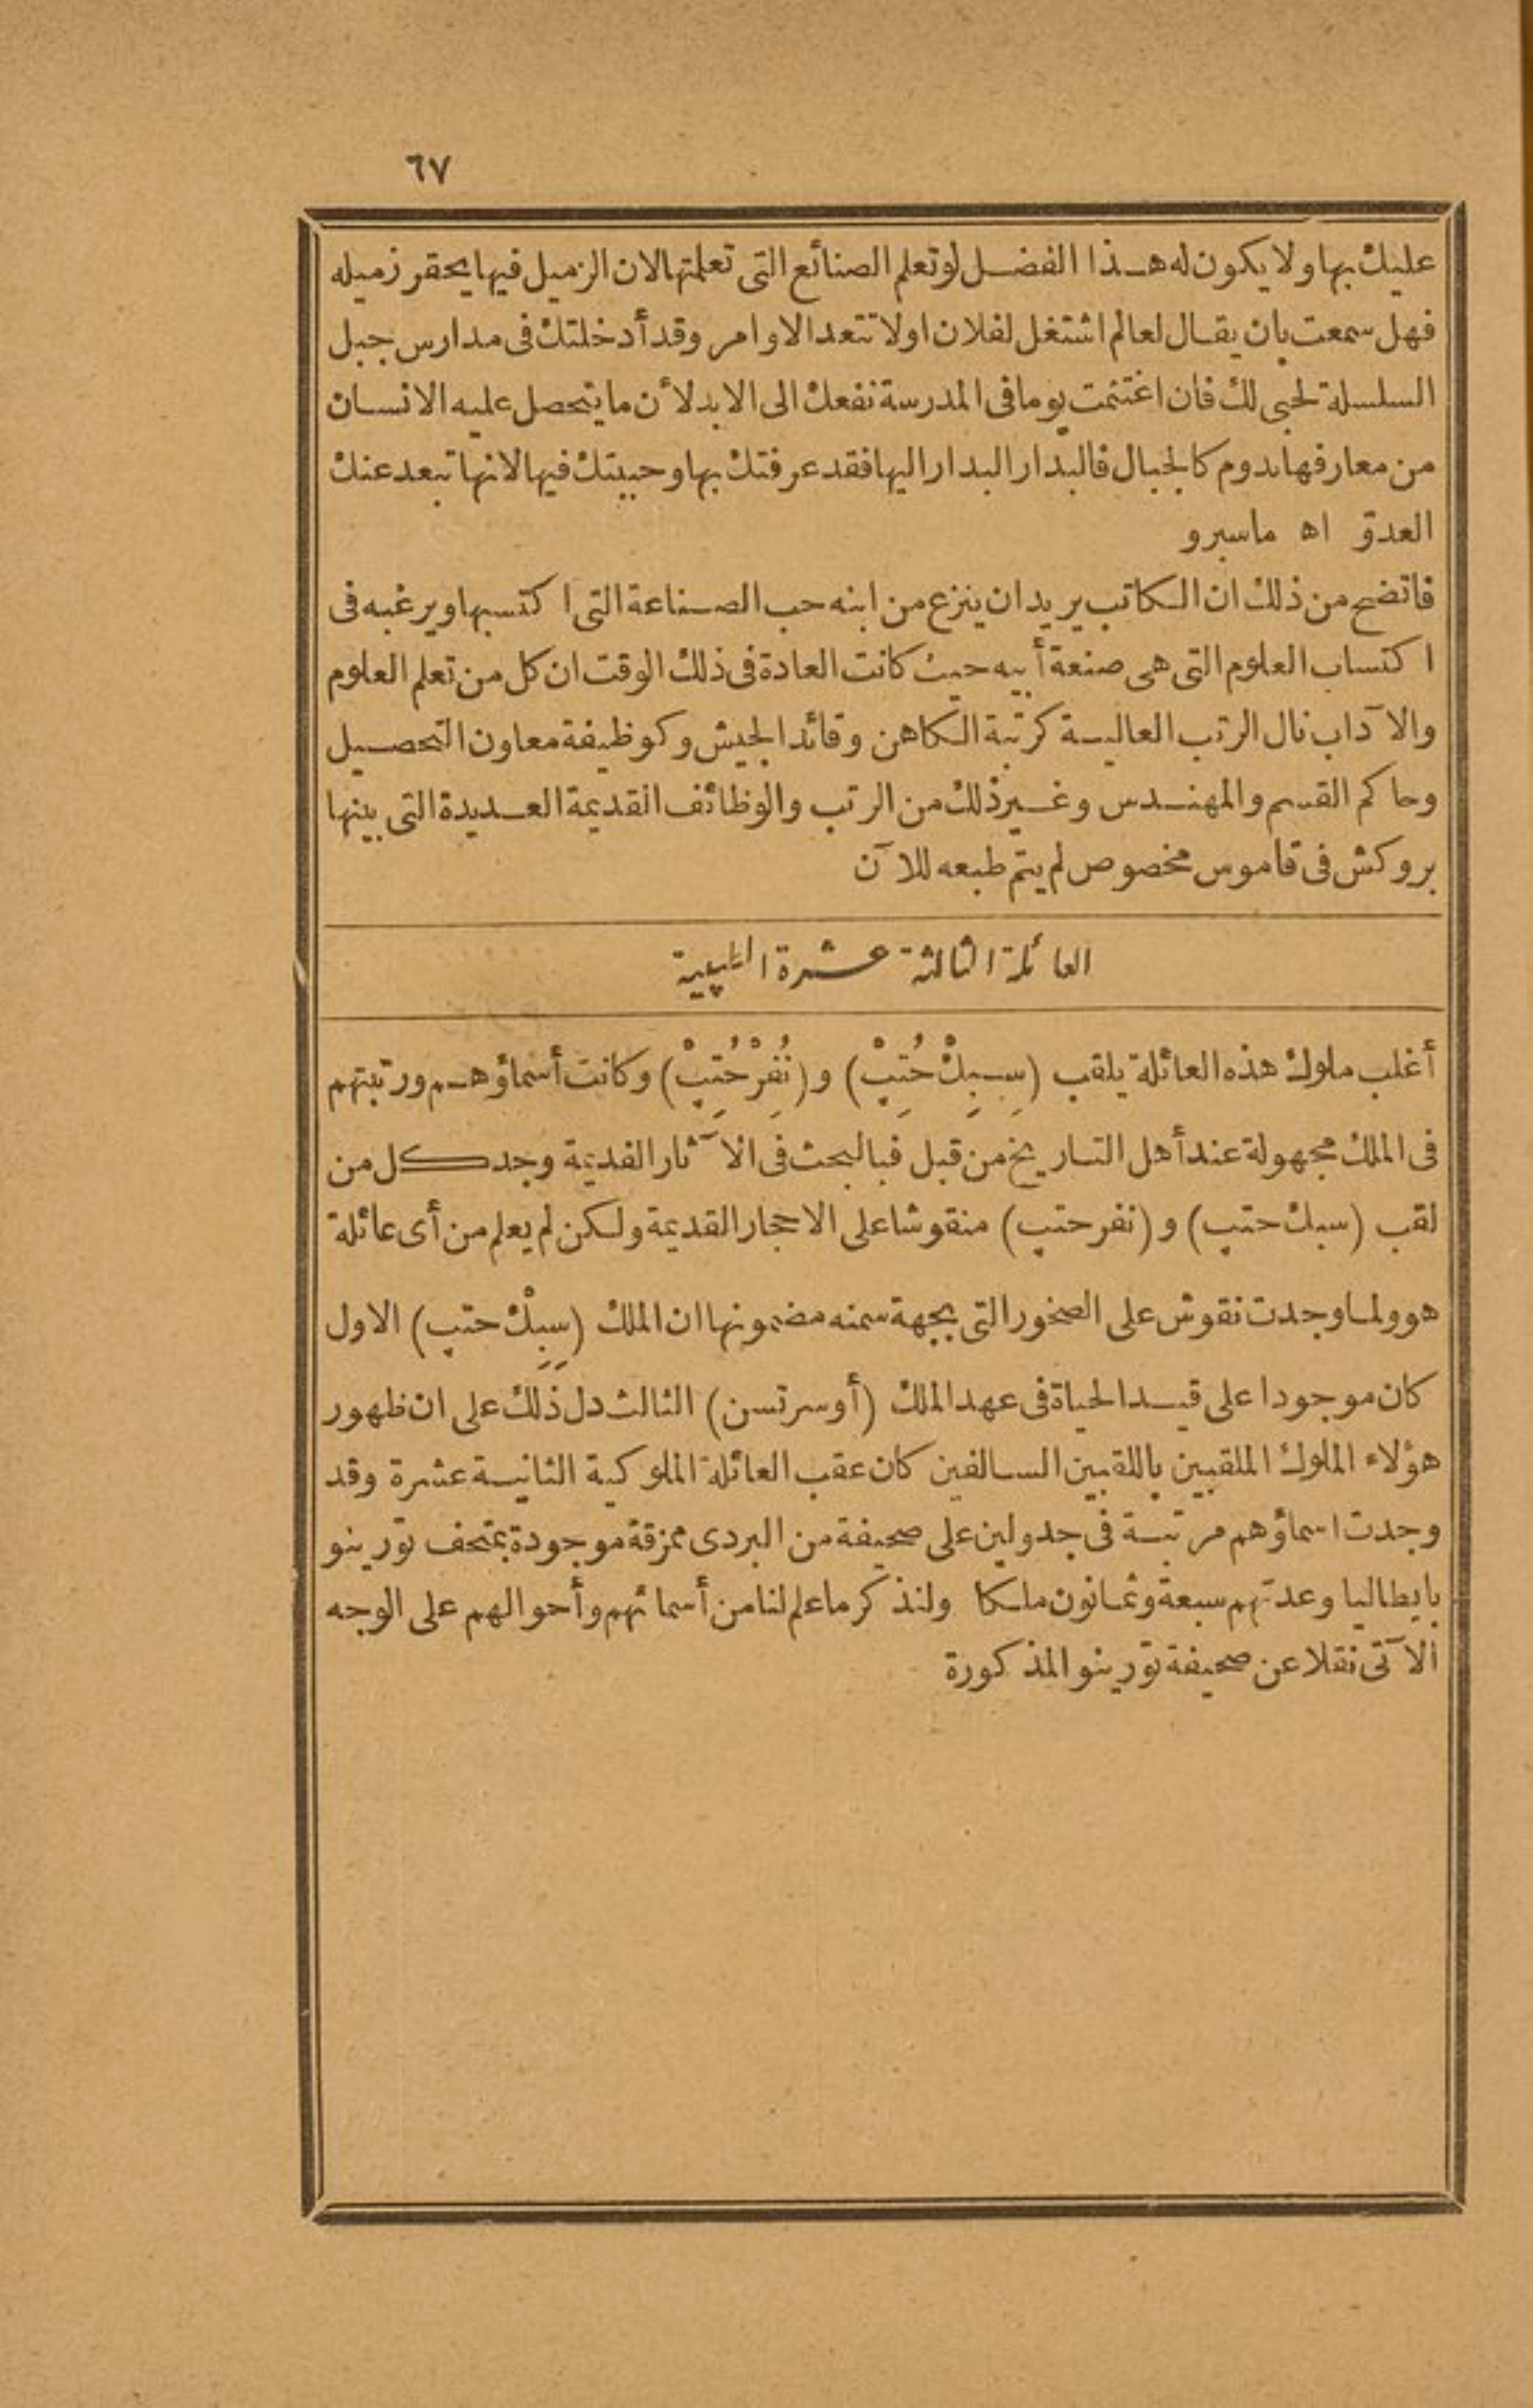 ٦٧
عليك بها ولا يكون له هذا الفضل لو تعلم الصنائع التى تعلمتها لان الزميل فيها يحقر زميله
فهل سمعت بان يقال لعالم اشتغل لفلان اولا تتعد الاوامر وقد أدخلتك فى مدارس جبل
السلسلة لحبى لك فان اغتنمت يوما فى المدرسة نفعك الى الابد لأن ما يتحصل عليه الانسان
من معارفها يدوم كالجبال فالبدار البدار اليها فقد عرفتك بها وحببتك فيها لانها تبعد عنك
العدوّ اه ماسبرو
فاتضح من ذلك ان الكاتب يريد ان ينزع من ابنه حب الصناعة التى اكتسبها ويرغبه فى
اكتساب العلوم التى هى صنعة أبيه حيث كانت العادة فى ذلك الوقت ان كل من تعلم العلوم
والآداب نال الرتب العالية كرتبة الكاهن وقائد الجيش وكوظيفة معاون التحصيل
وحاكم القسم والمهندس وغير ذلك من الرتب والوظائف القديمة العديدة التى بينها
بروكش فى قاموس مخصوص لم يتم طبعه للآن
العائلة الثالثة عشرة الطيبية
أغلب ملوك هذه العائلة يلقب (سِبِكْ حُتِپْ) و (نُفِرْ حُتِپْ) وكانت أسماؤهم ورتبتهم
فى الملك مجهولة عند أهل التاريخ من قبل فبالبحث فى الآثار القديمة وجد كل من
لقب (سبك حتپ) و (نفرحتپ) منقوشا على الاحجار القديمة ولكن لم يعلم من أى عائلة
هو ولما وجدت نقوش على الصخور التى بجهة سمنه مضمونها ان الملك (سِبِكْ حتپ) الاول
كان موجودا على قيد الحياة فى عهد الملك (أوسرتسن) الثالث دل ذلك على ان ظهور
هؤلاء الملوك الملقبين باللقبين السالفين كان عقب العائلة الملوكية الثانية عشرة وقد
وجدت اسماؤهم مرتبة فى جدولين على صحيفة من البردى ممزقة موجودة بمتحف تورينو
بايطاليا وعدتهم سبعة وثمانون ملكا ولنذكر ما علم لنا من أسمائهم وأحوالهم على الوجه
الآتى نقلا عن صحيفة تورينو المذكورة